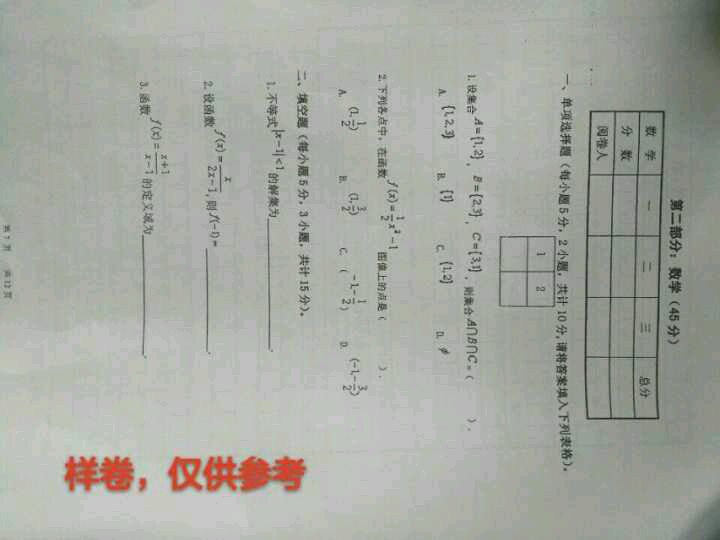 第二部分：数学（45分）
数 学 一 二 三 总分
分 数
阅卷人
一、单项选择题（每小题5分，2小题，共计10分，请将答案填入下列表格）。
1 2
1. 设集合 A={1,2}，B={2,3}，C={3,1}，则集合 A∩B∩C=（ ）.
A. {1,2,3} B. {1} C. {1,2} D. ϕ
2. 下列各点中，在函数 f(x)=\frac{1}{2}x²-1 图像上的点是（ ）.
A. (1,\frac{1}{2}) B. (1,\frac{3}{2}) C. (-1,-\frac{1}{2}) D. (-1,-\frac{3}{2})
二、填空题（每小题5分，3小题，共计15分）。
1. 不等式|x-1|<1的解集为________.
2. 设函数 f(x)=\frac{x}{2x-1}, 则 f(-1)=________.
3. 函数 f(x)=\frac{x+1}{x-1} 的定义域为________.
第 7 页 共 12 页
样卷，仅供参考